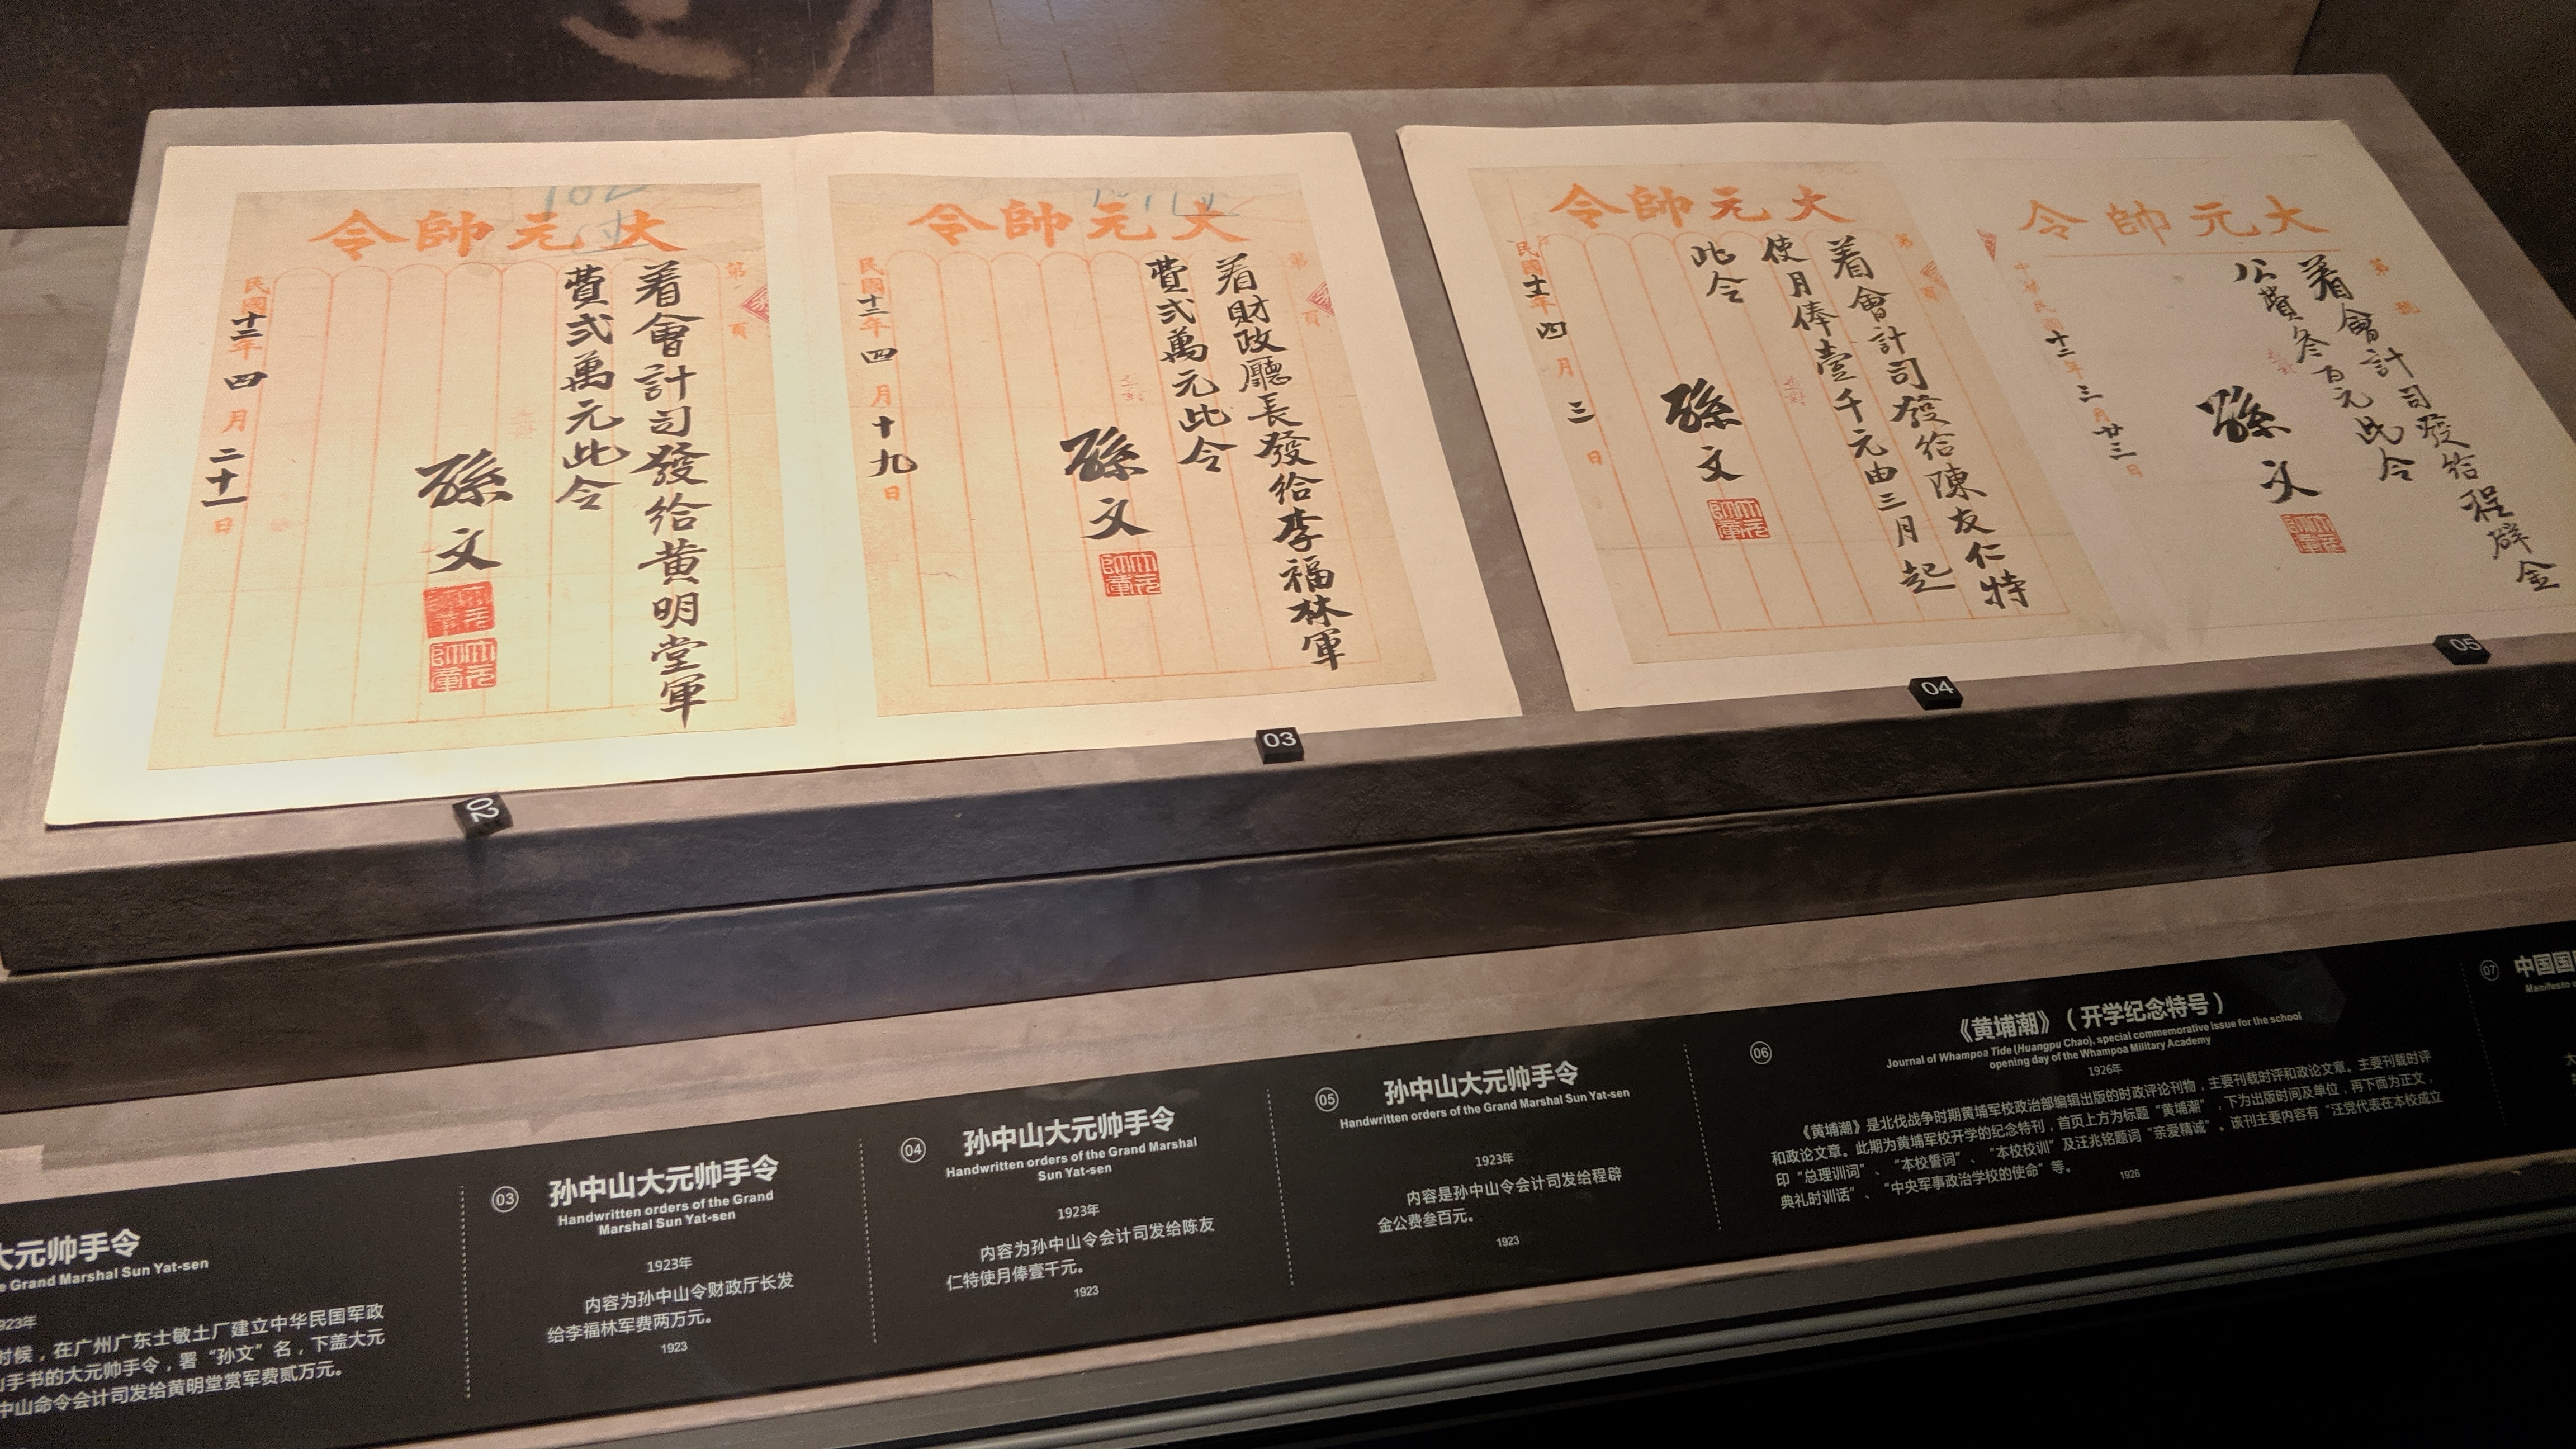 大元帥令
第
頁
着會計司發給黄明堂軍
費弍萬元此令
孫文
民國十二年四月二十一日
大元帥令
第
頁
着財政廳長發給李福林軍
費弍萬元此令
孫文
民國十二年四月十九日
大元帥令
第
頁
着會計司發給陳友仁特
使月俸壹千元由三月起
此令
孫文
民國十二年四月三日
大元帥令
第
號
着會計司發給程辟金
公費叁百元此令
孫文
中華民國十二年三月廿三日
02
03
04
05
大元帅手令
e Grand Marshal Sun Yat-sen
923年
时候，在广州广东士敏土厂建立中华民国军政
山手书的大元帅手令，署“孙文”名，下盖大元
中山命令会计司发给黄明堂赏军费贰万元。
03
孙中山大元帅手令
Handwritten orders of the Grand
Marshal Sun Yat-sen
1923年
内容为孙中山令财政厅长发
给李福林军费两万元。
1923
04
孙中山大元帅手令
Handwritten orders of the Grand Marshal
Sun Yat-sen
1923年
内容为孙中山令会计司发给陈友
仁特使月俸壹千元。
1923
05
孙中山大元帅手令
Handwritten orders of the Grand Marshal Sun Yat-sen
1923年
内容是孙中山令会计司发给程辟
金公费叁百元。
1923
06
《黄埔潮》（开学纪念特号）
Journal of Whampoa Tide (Huangpu Chao), special commemorative issue for the school
opening day of the Whampoa Military Academy
1926年
《黄埔潮》是北伐战争时期黄埔军校政治部编辑出版的时政评论刊物，主要刊载时评和政论文章。主要刊载时评
和政论文章。此期为黄埔军校开学的纪念特刊，首页上方为标题“黄埔潮”，下为出版时间及单位，再下面为正文，
印“总理训词”、“本校誓词”、“本校校训”及汪兆铭题词“亲爱精诚”。该刊主要内容有“汪党代表在本校成立
典礼时训话”、“中央军事政治学校的使命”等。
1926
07
中国国
Manifesto